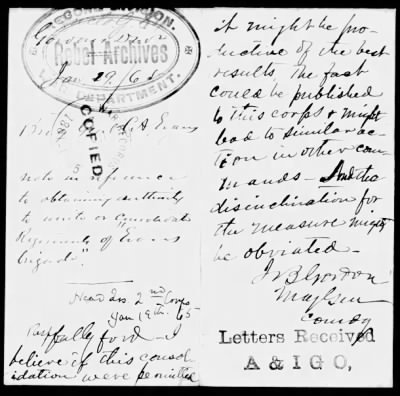 RECORD DIVISION.
Rebel Archives
WAR DEPARTMENT.
Jan 29/65
COPIED
Evans
note in reference
to obtaining authority
to unite or consolidate
Regiments of "Evans
Brigade".
Head Qrs 2nd Corps
Jan 19th. 65
Respfully ford - I
believe if this consol
idation were permitted
it might be pro-
ductive of the best
results. The fact
could be published
to this corps & might
lead to similar ac-
tion in other com-
mands - And the
disinclination for
the measure might
be obviated -
J B Gordon
Maj Gen
Comdg
Letters Received
A & I G O,